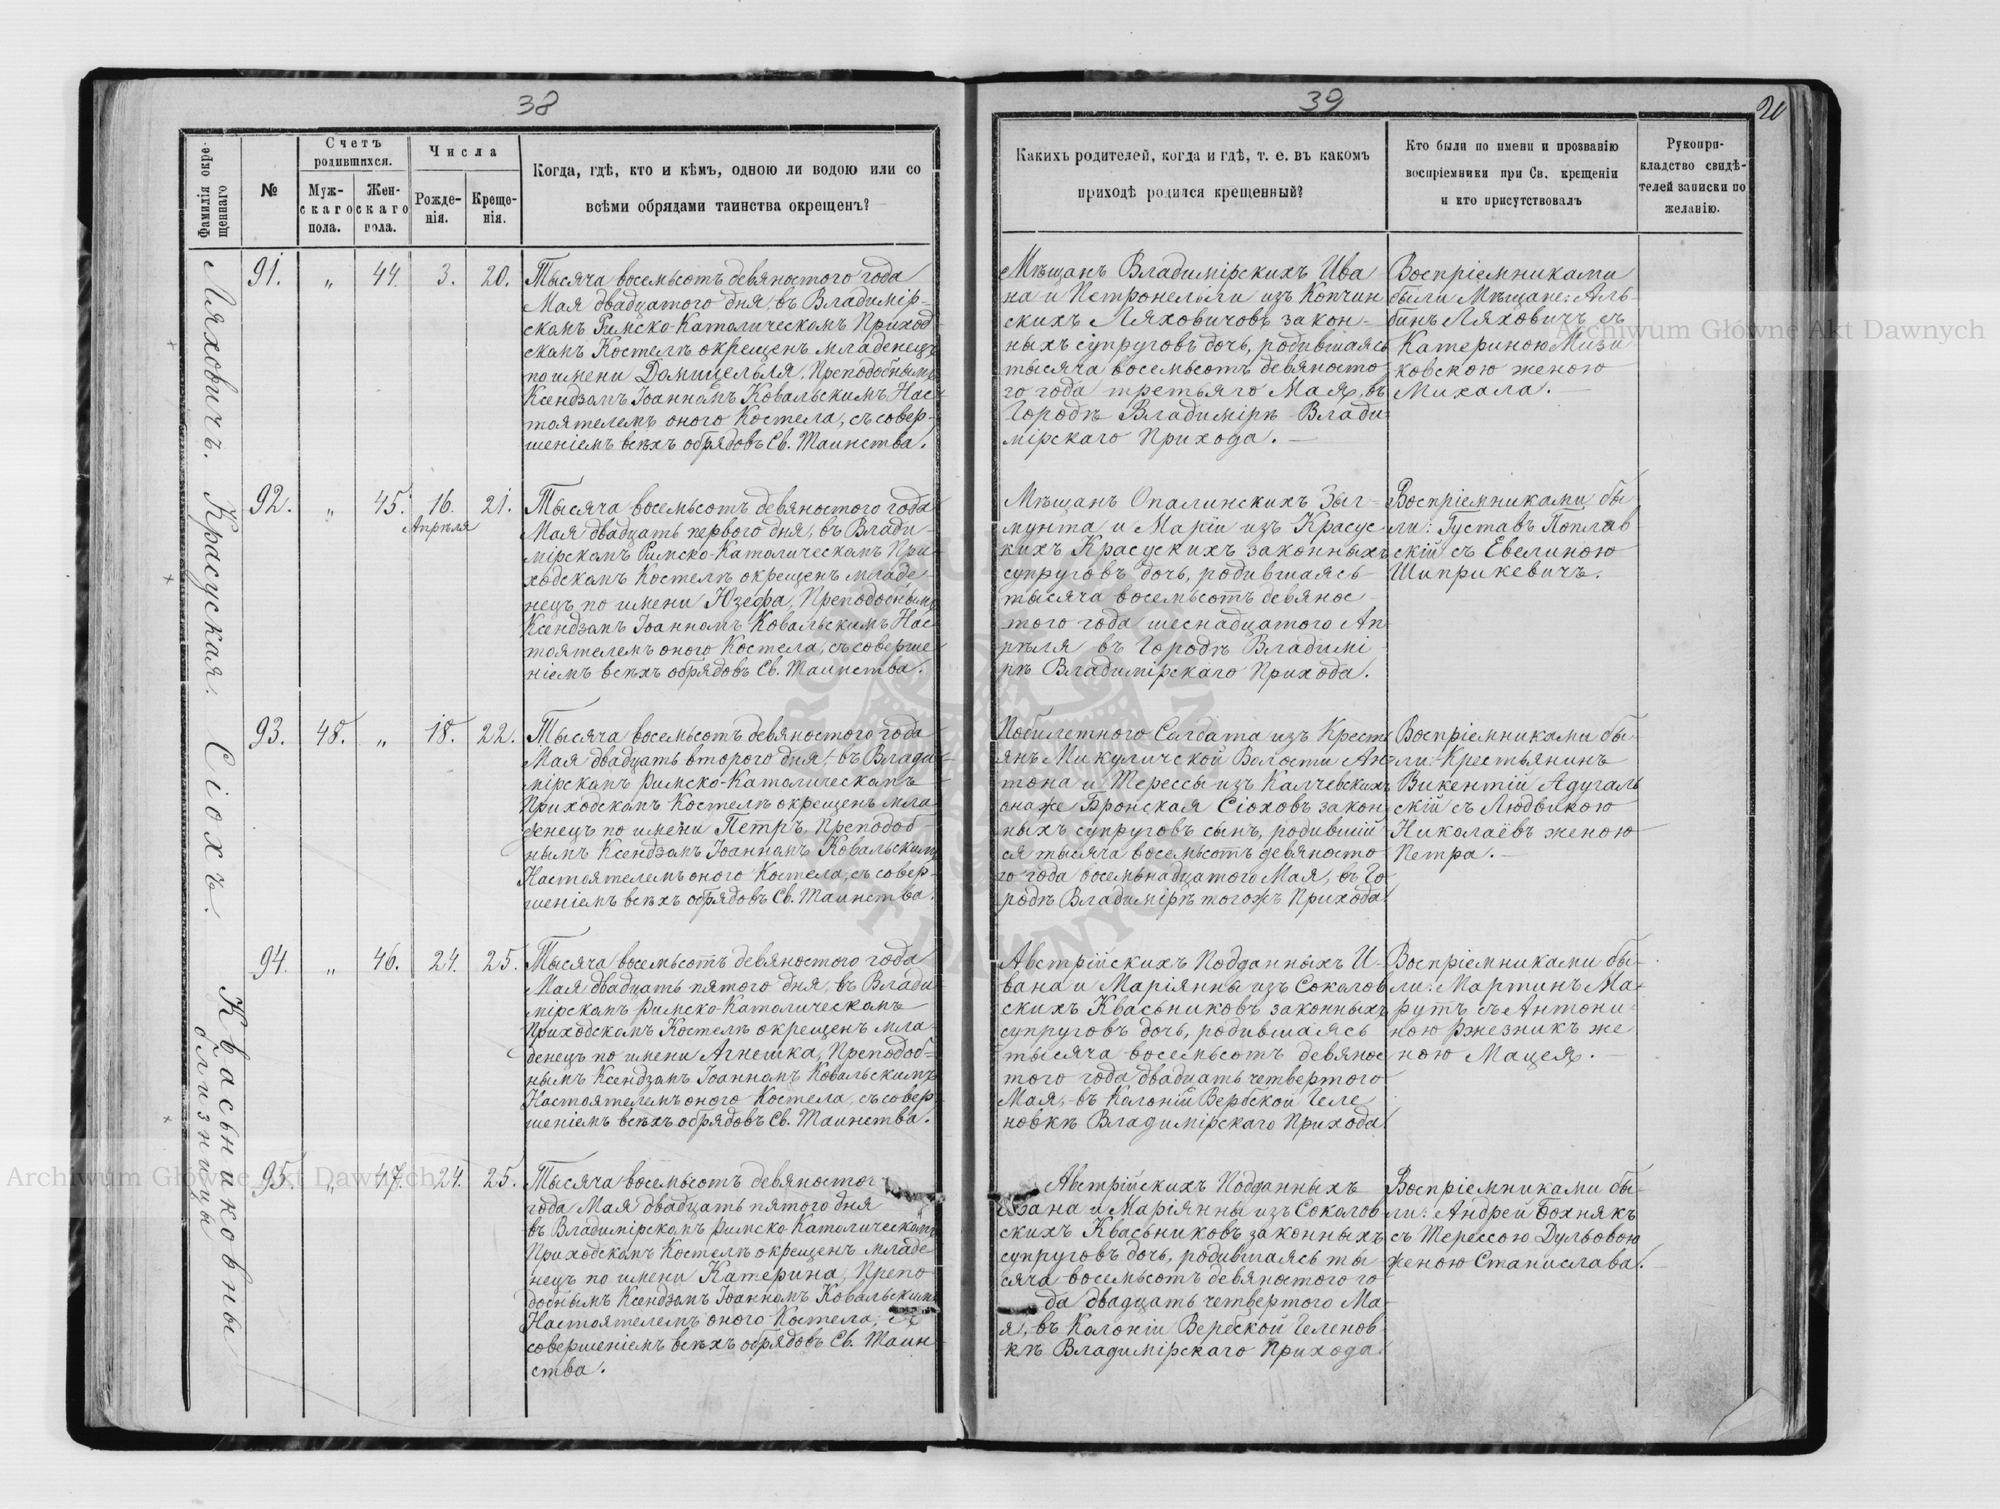 38
Фамилія окре-
щеннаго
№
Счетъ
родившихся.
Муж-
скаго
пола.
Жен-
скаго
пола.
Числа
Рожде-
нія.
Креще-
нія.
Когда, гдѣ, кто и кѣмъ, одною ли водою или со
всѣми обрядами таинства окрещенъ?
Ляховичъ.
91. „ 44. 3. 20.
Тысяча восемьсотъ девяностого года
Мая двадцатого дня, въ Владимір-
скомъ Римско-Католическомъ Приход-
скомъ Костелѣ окрещенъ младенецъ
по имени Домицелля, Преподобнымъ
Ксендзомъ Іоанномъ Ковальскимъ Нас-
тоятелемъ оного Костела, съ совер-
шеніемъ всѣхъ обрядовъ Св. Таинства.
Красуская.
92. „ 45. 16. 21.
Апрѣля
Тысяча восемьсотъ девяностого года
Мая двадцать первого дня, въ Влади-
мірскомъ Римско-Католическомъ При-
ходскомъ Костелѣ окрещенъ младе-
нецъ по имени Юзефа, Преподобнымъ
Ксендзомъ Іоанномъ Ковальскимъ Нас-
тоятелемъ оного Костела, съ соверше-
ніемъ всѣхъ обрядовъ Св. Таинства.
Сіохъ.
93. 48. „ 18. 22.
Тысяча восемьсотъ девяностого года
Мая двадцать второго дня, въ Влади-
мірскомъ Римско-Католическомъ
Приходскомъ Костелѣ окрещенъ мла-
денецъ по имени Петръ, Преподоб-
нымъ Ксендзомъ Іоанномъ Ковальскимъ
Настоятелемъ оного Костела, съ совер-
шеніемъ всѣхъ обрядовъ Св. Таинства.
Квасьниковны
близницы
94. „ 46. 24. 25.
Тысяча восемьсотъ девяностого года
Мая двадцать пятого дня, въ Влади-
мірскомъ Римско-Католическомъ
Приходскомъ Костелѣ окрещенъ мла-
денецъ по имени Агнешка, Преподоб-
нымъ Ксендзомъ Іоанномъ Ковальскимъ
Настоятелемъ оного Костела, съ совер-
шеніемъ всѣхъ обрядовъ Св. Таинства.
95. „ 47. 24. 25.
Тысяча восемьсотъ девяностог
года Мая двадцать пятого дня
въ Владимірскомъ Римско-Католическомъ
Приходскомъ Костелѣ окрещенъ младе-
нецъ по имени Катерина, Препо-
добнымъ Ксендзомъ Іоанномъ Ковальскимъ
Настоятелемъ оного Костела, съ
совершеніемъ всѣхъ обрядовъ Св. Таин-
ства.
39
20
Какихъ родителей, когда и гдѣ, т. е. въ какомъ
приходѣ родился крещенный?
Кто были по имени и прозванію
воспріемники при Св. крещеніи
и кто присутствовалъ
Рукопри-
кладство свидѣ-
телей записки по
желанію.
Мѣщанъ Владимірскихъ Ива
на и Петронелли изъ Копчин
скихъ Ляховичовъ закон-
ныхъ супруговъ дочь, родившаясь
тысяча восемьсотъ девяносто
го года третьяго Мая, въ
Городѣ Владимірѣ Влади
мірскаго Прихода.
Воспріемниками
были Мѣщане: Аль-
бинъ Ляховичъ съ
Катериною Мизи
ковскою женою
Михала.
Мѣщанъ Опалинскихъ Зыг-
мунта и Маріи изъ Красус-
кихъ Красускихъ законныхъ
супруговъ дочь, родившаясь
тысяча восемьсотъ девянос-
того года шеснадцатого Ап
рѣля въ Городѣ Владимі-
рѣ Владимірскаго Прихода.
Воспріемниками бы
ли: Густавъ Поплав
скій съ Евелиною
Шиприкевичъ.
Побилетного Солдата изъ Крест
янъ Микуличской Волости Ан-
тона и Терессы изъ Калчевскихъ
она же Бронская Сіоховъ закон
ныхъ супруговъ сынъ, родившій
ся тысяча восемьсотъ девяносто
го года восемьнадцатого Мая, въ Го
родѣ Владимірѣ тогожъ Прихода
Воспріемниками бы-
ли: Крестьянинъ
Викентій Адугаль
скій съ Людвикою
Николаёвъ женою
Петра.
Австрійскихъ Подданныхъ И-
вана и Маріянны изъ Соколов
скихъ Квасьниковъ законныхъ
супруговъ дочь, родившаясь
тысяча восемьсотъ девянос
того года двадцать четвертого
Мая, въ Колоніи Вербской Геле
новкѣ Владимірскаго Прихода
Воспріемниками бы-
ли: Мартинъ Ма-
рутъ съ Антони-
ною Ржезникъ же
ною Мацея.
Австрійскихъ Подданныхъ
вана и Маріянны изъ Соколов
скихъ Квасьниковъ законныхъ
супруговъ дочь, родившаясь ты
сяча восемьсотъ девяностого го
да двадцать четвертого Ма-
я, въ Колоніи Вербской Геленов
кѣ Владимірскаго Прихода
Воспріемниками бы-
ли: Андрей Бохнякъ
съ Терессою Дульовою
женою Станислава.
Archiwum Główne Akt Dawnych
Archiwum Główne Akt Dawnych